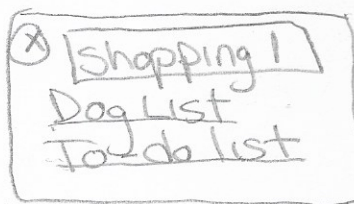 X
Shopping |
Dog List
To-do list